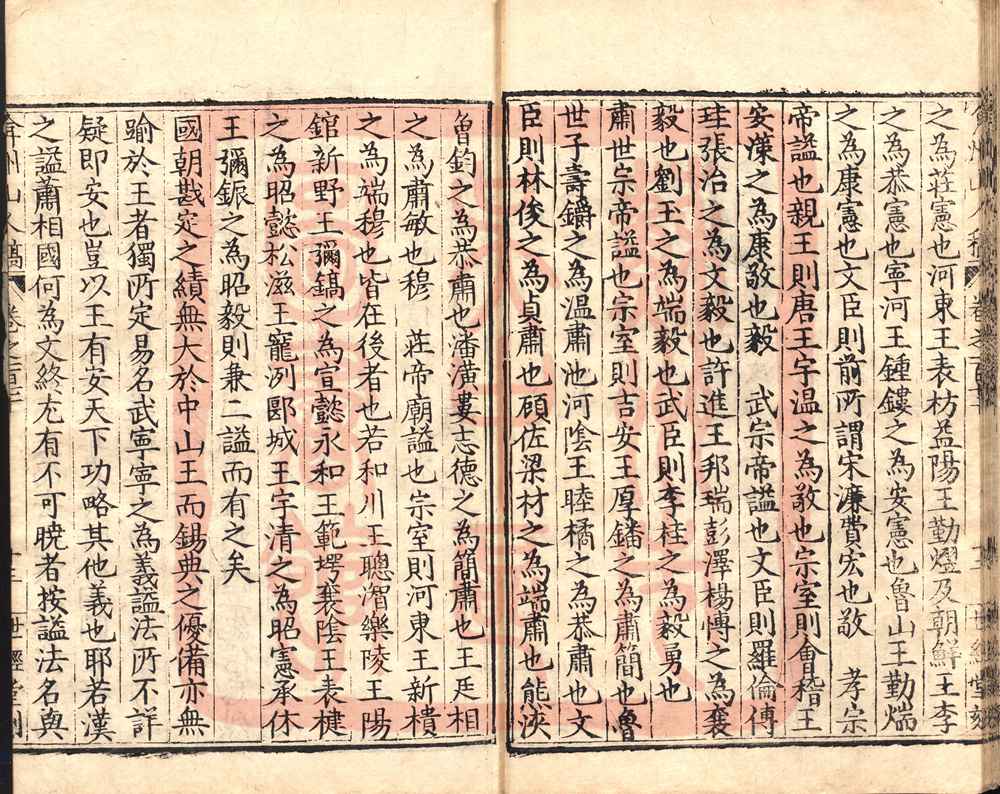 之為莊憲也河東王表枋益陽王勤熠及朝鮮王李
之為恭憲也寧河王鍾鏤之為安憲也魯山王勤㷄
之為康憲也文臣則前所謂宋濂費宏也敬 孝宗
帝謚也親王則唐王宇温之為敬也宗室則會稽王
安澯之為康敬也毅 武宗帝謚也文臣則羅倫傅
珪張治之為文毅也許進王邦瑞彭澤楊慱之為襄
毅也劉玉之為端毅也武臣則李桂之為毅勇也
肅世宗帝謚也宗室則吉安王厚鐇之為肅簡也魯
世子壽鏳之為温肅池河陰王睦橘之為恭肅也文
臣則林俊之為貞肅也頋佐梁材之為端肅也熊浹
魯鈞之為恭肅也潘潢婁志德之為簡肅也王廷相
之為肅敏也穆 莊帝廟謚也宗室則河東王新㩓
之為端穆也皆在後者也若和川王聰㵆樂陵王陽
錧新野王彌鎬之為宣懿永和王範堮襄陰王表楗
之為昭懿松滋王寵㳽郾城王宇清之為昭憲承休
王彌鋠之為昭毅則兼二謚而有之矣
國朝戡定之績無大於中山王而錫典之優備亦無
踰於王者獨所定易名武寧寧之為義謚法所不詳
疑即安也豈以王有安天下功略其他義也耶若漢
之謚蕭相國何為文終尤有不可曉者按謚法名與
弇州山人稿 卷之
世經堂刻